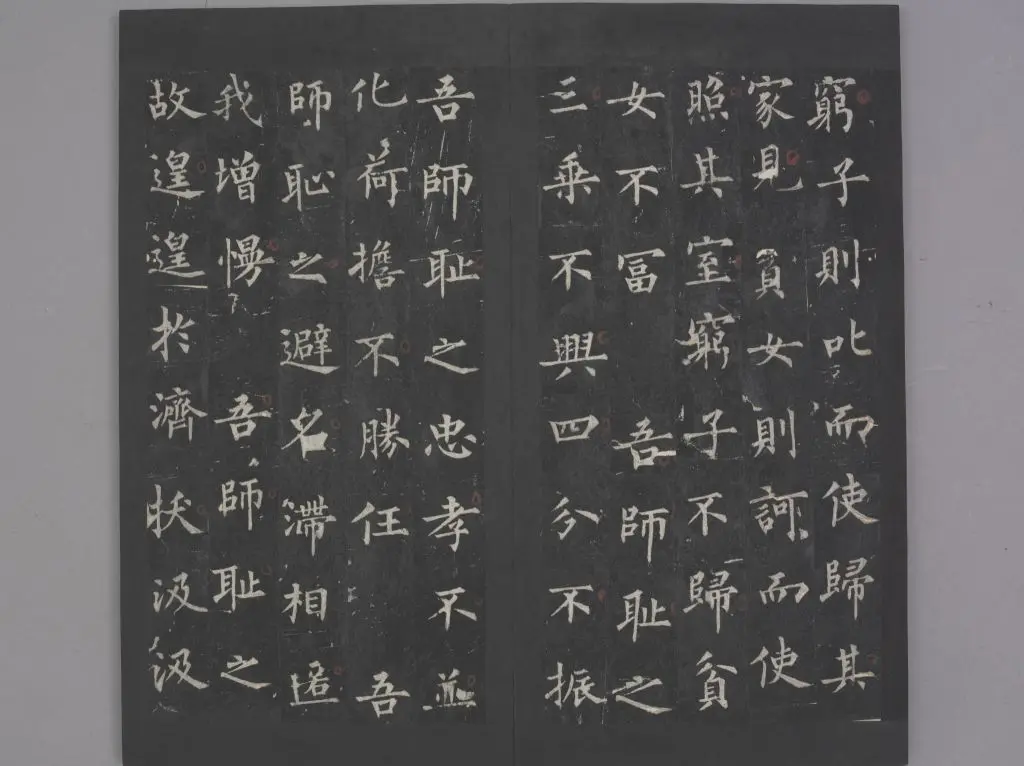 窮子則叱而使歸其
家見貧女則訶而使
照其室窮子不歸貧
女不冨 吾師耻之
三乗不興四分不振
吾師耻之忠孝不並
化荷擔不勝任 吾
師恥之避名滯相匿
我增慢 吾師耻之
故遑遑於濟拔汲汲